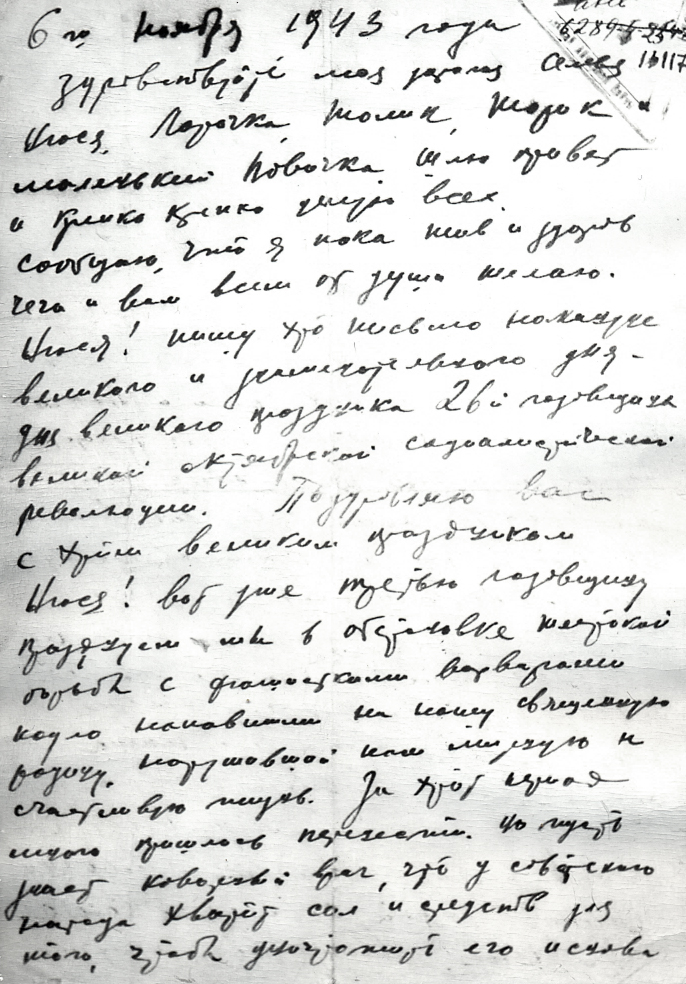 6го ноября 1943 года
Здравствуйте моя дорогая семья
Нюся, Лорочка, Толик, и
маленький Вовочка шлю привет
и крепко крепко целую всех.
сообщаю, что я пока жив и здоров
чего и вам всем от души желаю.
Нюся! пишу это письмо накануне
великого и знаменательного дня -
дня великого праздника 26й годовщина
великой октябрьской социалистической
революции. Поздравляю вас
с этим великим праздником
Нюся! вот уже третью годовщину
празднуем мы в обстановке жестокой
борьбы с фашисткими варварами
нагло напавшими на нашу священную
родину, нарушавшой нам мирную и
счастливую жизнь. За этот период
много пришлось перенести. Но пусть
знает коварный враг, что у советского
народа хватит сил и средств для
того, чтобы уничтожить его и снова